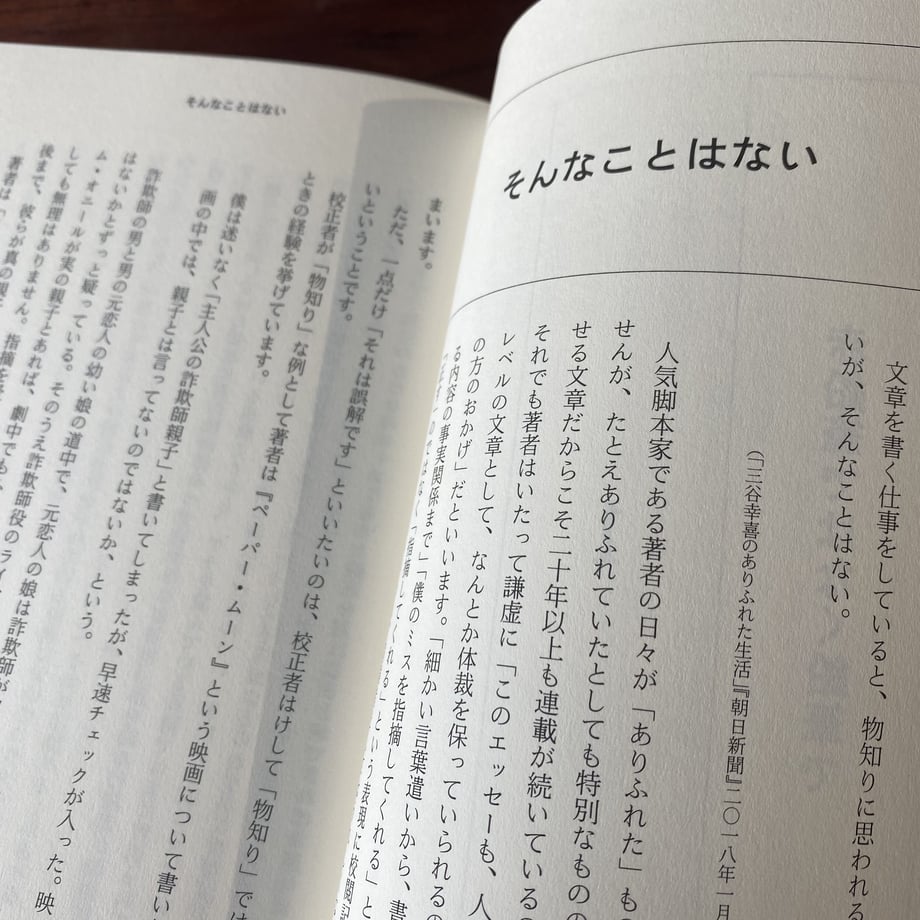 そんなことはない
文章を書く仕事をしていると、物知りに思われる
いが、そんなことはない。
(「三谷幸喜のありふれた生活」『朝日新聞』二〇一八年一月
人気脚本家である著者の日々が「ありふれた」もの
せんが、たとえありふれていたとしても特別なものの
せる文章だからこそ二十年以上も連載が続いているの
それでも著者はいたって謙虚に「このエッセーも、人
レベルの文章として、なんとか体裁を保っていられるの
の方のおかげ」だといいます。「細かい言葉遣いから、書
る内容の事実関係まで」「僕のミスを指摘してくれる」と
のではなく「指摘してくれる」という表現に校閲記
そんなことはない
まいます。
ただ、一点だけ「それは誤解です」といいたいのは、校正者はけして「物知り」では
いということです。
校正者が「物知り」な例として著者は『ペーパー・ムーン』という映画について書い
ときの経験を挙げています。
僕は迷いなく「主人公の詐欺師親子」と書いてしまったが、早速チェックが入った。映
画の中では、親子とは言ってないのではないか、という。
詐欺師の男と男の元恋人の幼い娘の道中で、元恋人の娘は詐欺師が
はないかとずっと疑っている。そのうえ詐欺師役のライ
ム・オニールが実の親子とあれば、劇中でも、
しても無理はありません。指摘を
後まで、彼らが真の親
著者は「